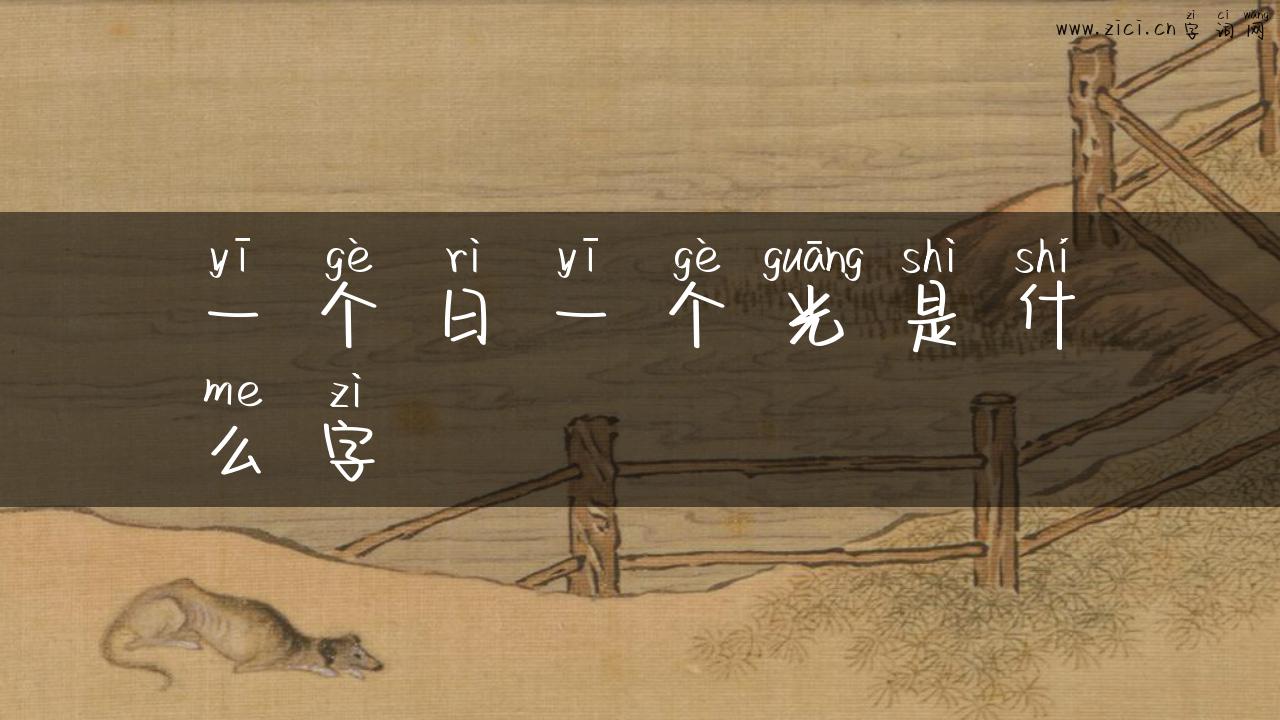 zì cí wǎng
www.zici.cn 字词网
yī gè rì yī gè guāng shì shí
一个日一个光是什
me zì
么字